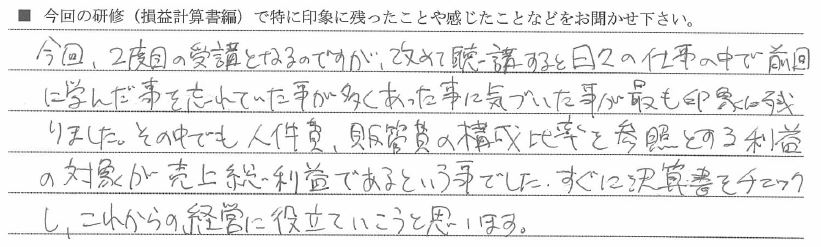 ■ 今回の研修（損益計算書編）で特に印象に残ったことや感じたことなどをお聞かせ下さい。
今回、2度目の受講となるのですが、改めて聴講すると日々の仕事の中で前回
に学んだ事を忘れていた事が多くあった事に気づいた事が最も印象に残
りました。その中でも人件費、販管費の構成比率を参照とする利益
の対象が売上総利益であるという事でした。すぐに決算書をチェック
し、これからの経営に役立ていこうと思います。